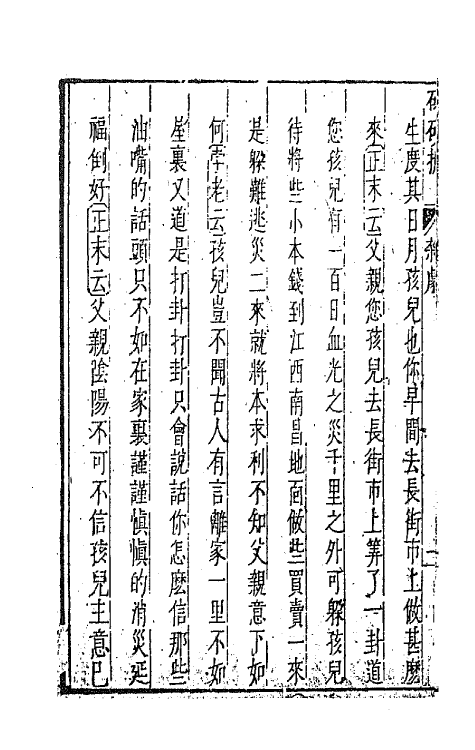 生度其日月孩兒也你早間去長街市上做甚麽
來正末云父親您孩兒去長街市上筭了一卦道
您孩兒有一百日血光之災千里之外可躲孩兒
待將些小本錢到江西南昌地面做些買賣一來
是躲難逃災二來就將本求利不知父親意下如
何孛老云孩兒豈不聞古人有言離家一里不如
屋裏又道是打卦打卦只會說話你怎麽信那些
油嘴的話頭只不如在家裏謹謹慎慎的消災延
福倒好正末云父親陰陽不可不信孩兒主意已